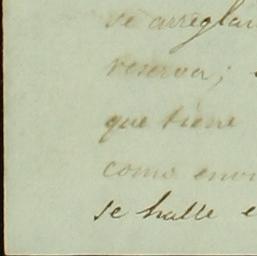 se arreglar
reserva;
que tiene
como envi
se halle e